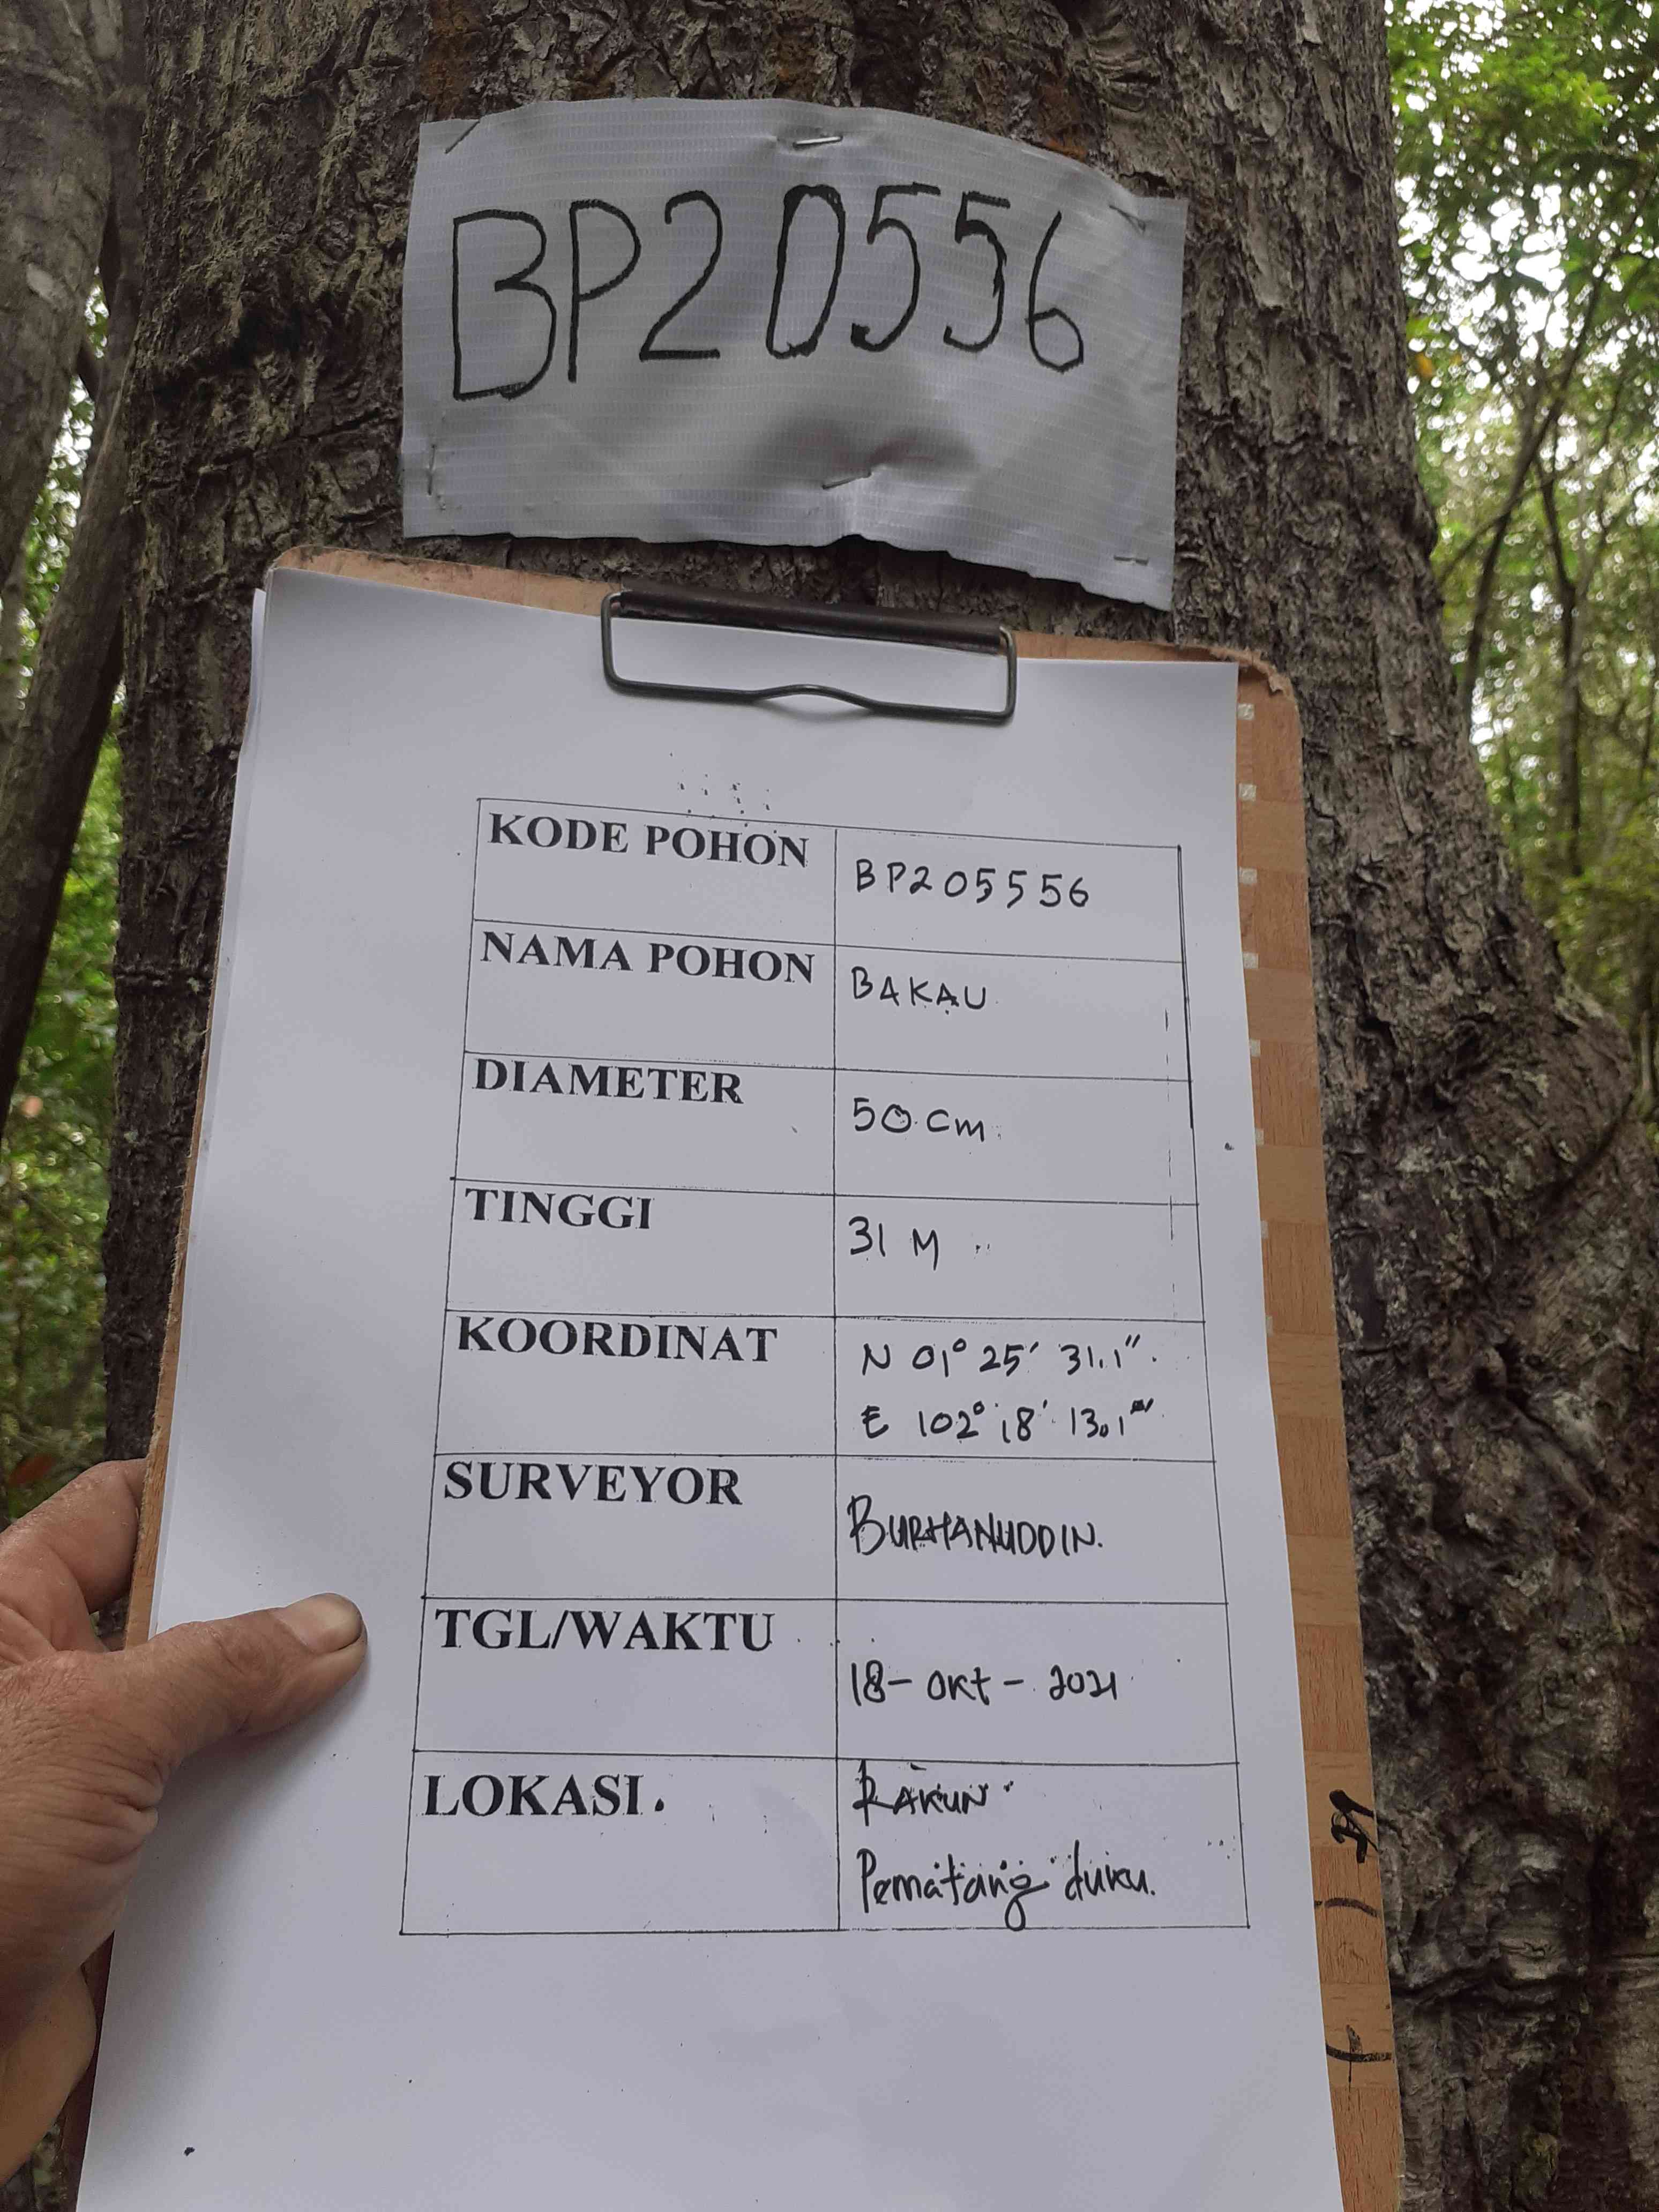 BP20556
KODE POHON
BP205556
NAMA POHON
BAKAU
DIAMETER
50 cm
TINGGI
31 M
KOORDINAT
N 01° 25' 31.1"
E 102° 18' 13.1"
SURVEYOR
BURHANUDDIN.
TGL/WAKTU
18-OKT-2021
LOKASI.
RAKUN
Pematang duku.